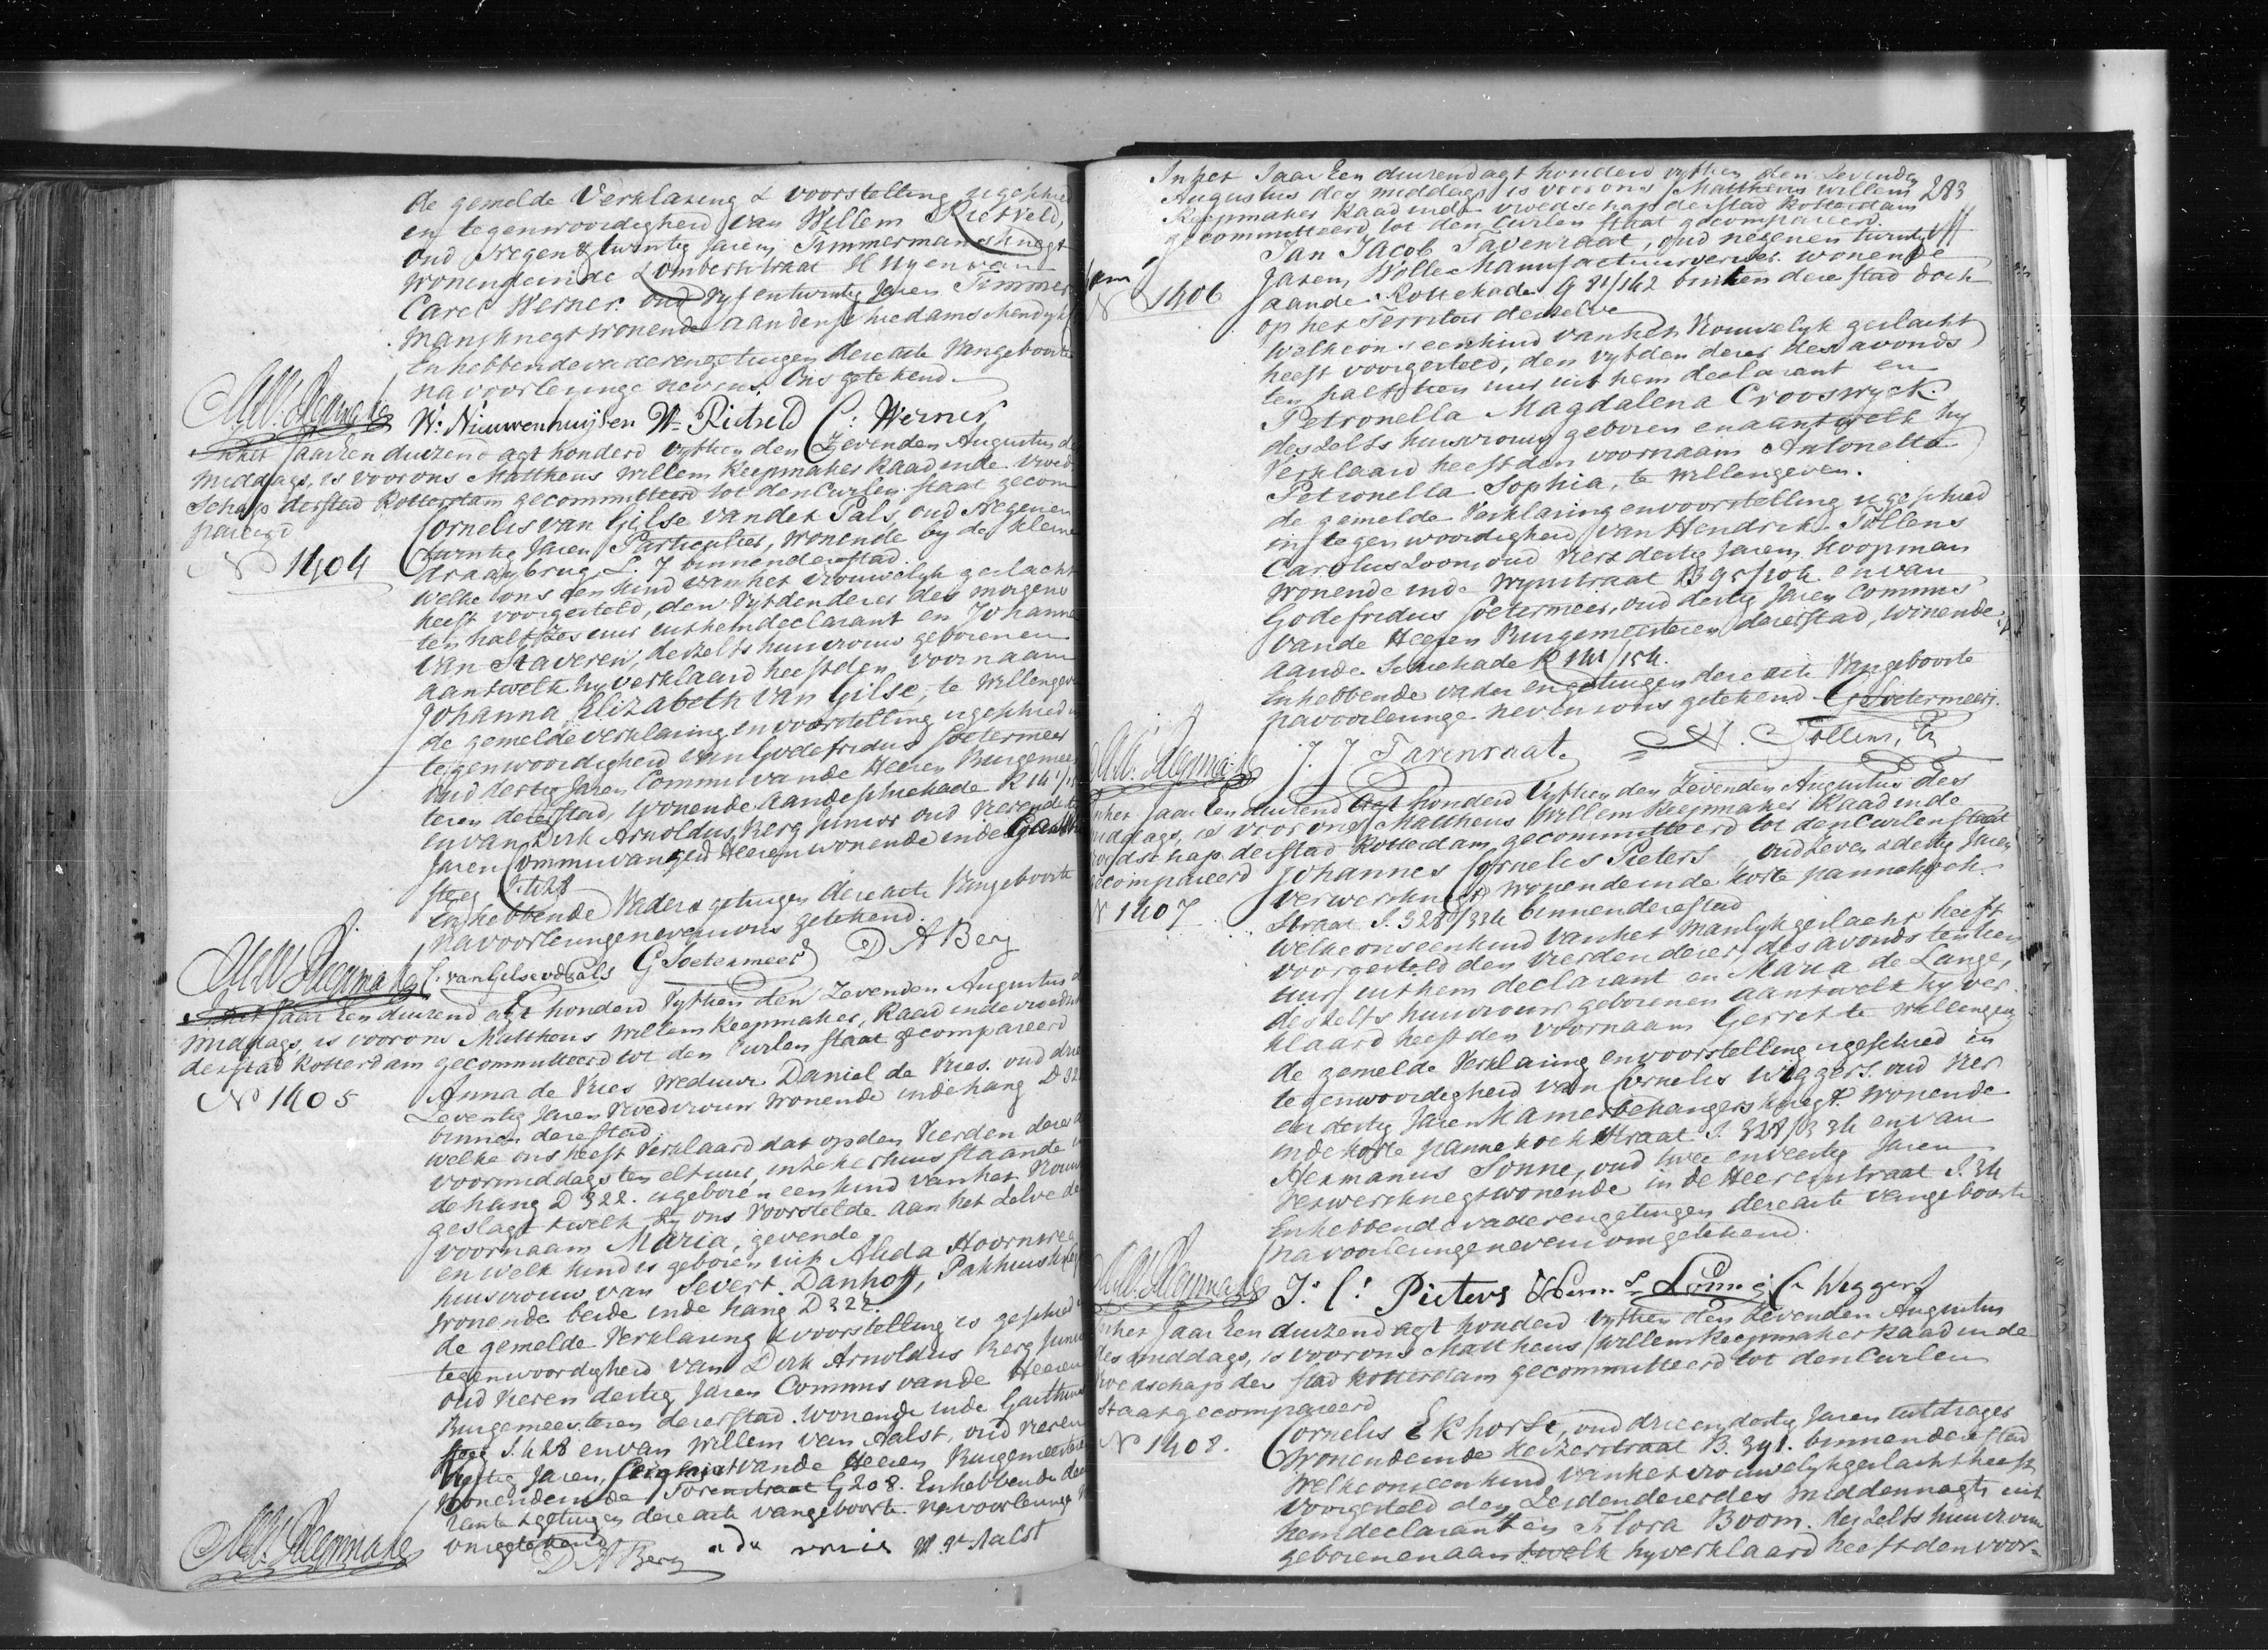 de gemelde Verklaring & voorstelling is geschied
in tegenwoordigheid van Willem Rietveld,
oud Negen & twintig Jaren, Timmermansknegt
wonende in de Lombertstraat en van
Carel Werner oud Vyf en twintig Jaren Timmer
mansknegt wonende aan den Schiedamschendyk
En hebbende vader en getuigen dere acte Van geboorte
na voorlezinge nevens Ons getekend.
W: Nieuwenhuijsen Wm Rietveld C: Werner
In het Jaar Een duizend agt honderd vyftien den Zevenden Augustus des
Middags, is voor ons Mattheus Willem Reepmaker Raad in de Vroed
Schap der stad Rotterdam gecommitteerd tot den Curlen staat gecom
pareerd
Cornelis van Gilse van der Pals, oud Negen en
N 1404
twintig Jaren Particulier, wonende by de kleine
draaybrug L. 7 binnen dere stad.
Welke ons een kind van het vrouwelyk geslacht
heeft voorgesteld, den Vyfden derer des morgens
ten half Zes uur uit hem declarant en Johanna
Van Staveren, deszelfs huisvrouw geboren en
aan twelk hy verklaard heeft den voornaam
Johanna Elizabeth Van Gilse, te willen geven
de gemelde verklaring en voorstelling is geschied in
tegenwoordigheid van Godefridus Soetermeer
oud dertig Jaren Commis van de Heeren Burgemees
teren dere stad, wonende aan de Schiekade R 141/15
en van Dirk Arnoldus Berg Junior oud vier en dertig
Jaren Commis van gem Heeren wonende in de Gasthuis
steeg S. 428
En hebbende Vader & getuigen dere acte Van geboorte
na voorlezinge nevens ons getekend.
C. van Gilse vd Pals G Soetermeer D A Berg
In het Jaar Een duizend agt honderd Vyftien den Zevenden Augustus des
Middags, is voor ons Mattheus Willem Reepmaker, Raad in de vroedschap
der stad Rotterdam gecommitteerd tot den Curlen staat gecompareerd
N 1405
Anna de Vries Weduwe Daniel de Vries. oud drie
Zeventig Jaren Vroedvrouw wonende in de hang D 322
binnen dere stad.
Welke ons heeft Verklaard dat op den Vierden derer
voormiddags ten elf uur, in zeker huis staande in
de hang D 322. is geboren een kind van het Vrouw
geslagt twelk zy ons Voorstelde aan het zelve de
voornaam Maria, gevende
en welk kind is geboren uit Alida Hoornweg
huisvrouw van Severt Danhoff, Pakhuisknegt
wonende beide in de hang D 322.
de gemelde Verklaring & voorstelling is geschied in
tegenwoordigheid van Dirk Arnoldus Berg Junior
oud Vier en dertig Jaren Commis van de Heeren
Burgemeesteren dere stad. wonende in de Gasthuis
steeg S. 428 en van Willem Van Aalst, oud Vier en
Jaren, van de Heeren Burgemeesteren
wonende in de Torenstraat G 208. En hebbende decla
rante & getuigen dere acte van geboorte. na voorlezinge
ons getekend
D A Berg a d vries W v Aalst
283
In het Jaar Een duizend agt honderd vyftien den Zevenden
Augustus des middags is voor ons Mattheus Willem
Reepmaker Raad in de vroedschap der stad Rotterdam
gecommitteerd tot den Curlen staat gecompareerd.
Jan Jacob Tavenraat, oud negen en twintig
N 1406
Jaren, Wolle Manufactuurverwer. wonende
aan de Rottekade G 81/142 buiten dere stad doch
op het Territoir derzelve
Welke ons een kind van het Vrouwelyk geslacht
heeft voorgesteld, den Vyfden derer des avonds
ten half tien uur uit hem declarant en
Petronella Magdalena Crooswyck.
deszelfs huisvrouw geboren en aan twelk hy
Verklaard heeft den voornaam Antonetta
Petronella Sophia, te willen geven.
de gemelde Verklaring en voorstelling is geschied
in tegenwoordigheid van Hendrik Tollens
Carolus Zoon oud Vier & dertig Jaren Koopman
wonende in de Wynstraat B 95/104 en van
Godefridus Soetermeer, oud dertig Jaren Commis
van de Heeren Burgemeesteren dere stad, wonende
aan de Schiekade R 141/154.
En hebbende vader en getuigen dere acte Van geboorte
na voorlezinge nevens ons getekend G Soetermeer.
J. J. Tavenraat. H. Tollens, Cz
In het Jaar Een duizend agt honderd Vyftien den Zevenden Augustus des
middags, is voor ons Mattheus Willem Reepmaker Raad in de
vroedschap der stad Rotterdam gecommitteerd tot den Curlen staat
gecompareerd Johannes Cornelis Pieters, oud Zeven & dertig Jaren
N 1407
Verwersknegt wonende in de korte pannekoek
straat S. 328/334 binnen dere stad
Welke ons een kind van het manlyk geslacht heeft
voorgesteld den Vierden derer, des avonds ten tien
uur, uit hem declarant en Maria de Lange,
deszelfs huisvrouw geboren en aan twelk hy ver
klaard heeft den voornaam Gerrit te willen geven
de gemelde Verklaring en voorstelling is geschied in
tegenwoordigheid van Cornelis Wiggers. oud Vier
en dertig Jaren Kamerbehangersknegt wonende
in de korte pannekoek straat S. 328/334 en van
Hermanus Sonne, oud twee en veertig Jaren
Verwersknegt wonende in de Heerenstraat S. 34
En hebbende vader en getuigen dere acte van geboorte
na voorlezinge nevens ons getekend.
Js Cs Pieters Herms Sonne Cs Wiggers
In het Jaar Een duizend agt honderd vyftien den Zevenden Augustus
des middags, is voor ons Mattheus Willem Reepmaker Raad in de
Vroedschap der stad Rotterdam gecommitteerd tot den Curlen
Staat gecompareerd
N 1408.
Cornelis Ekhorst, oud drie en dertig Jaren uitdrager
wonende in de Keizerstraat B. 391. binnen dere stad
Welke ons een kind van het vrouwelyk geslacht heeft
voorgesteld den Zesden derer des middernagts uit
hem declarant en Flora Boom. deszelfs huisvrouw
geboren en aan twelk hy verklaard heeft den voor-